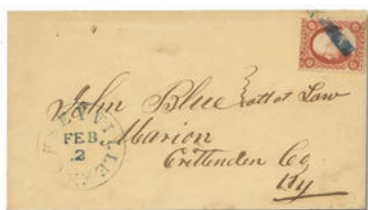 John Blue att at Law
Marion
Crittenden Co
Ky
FEB
2